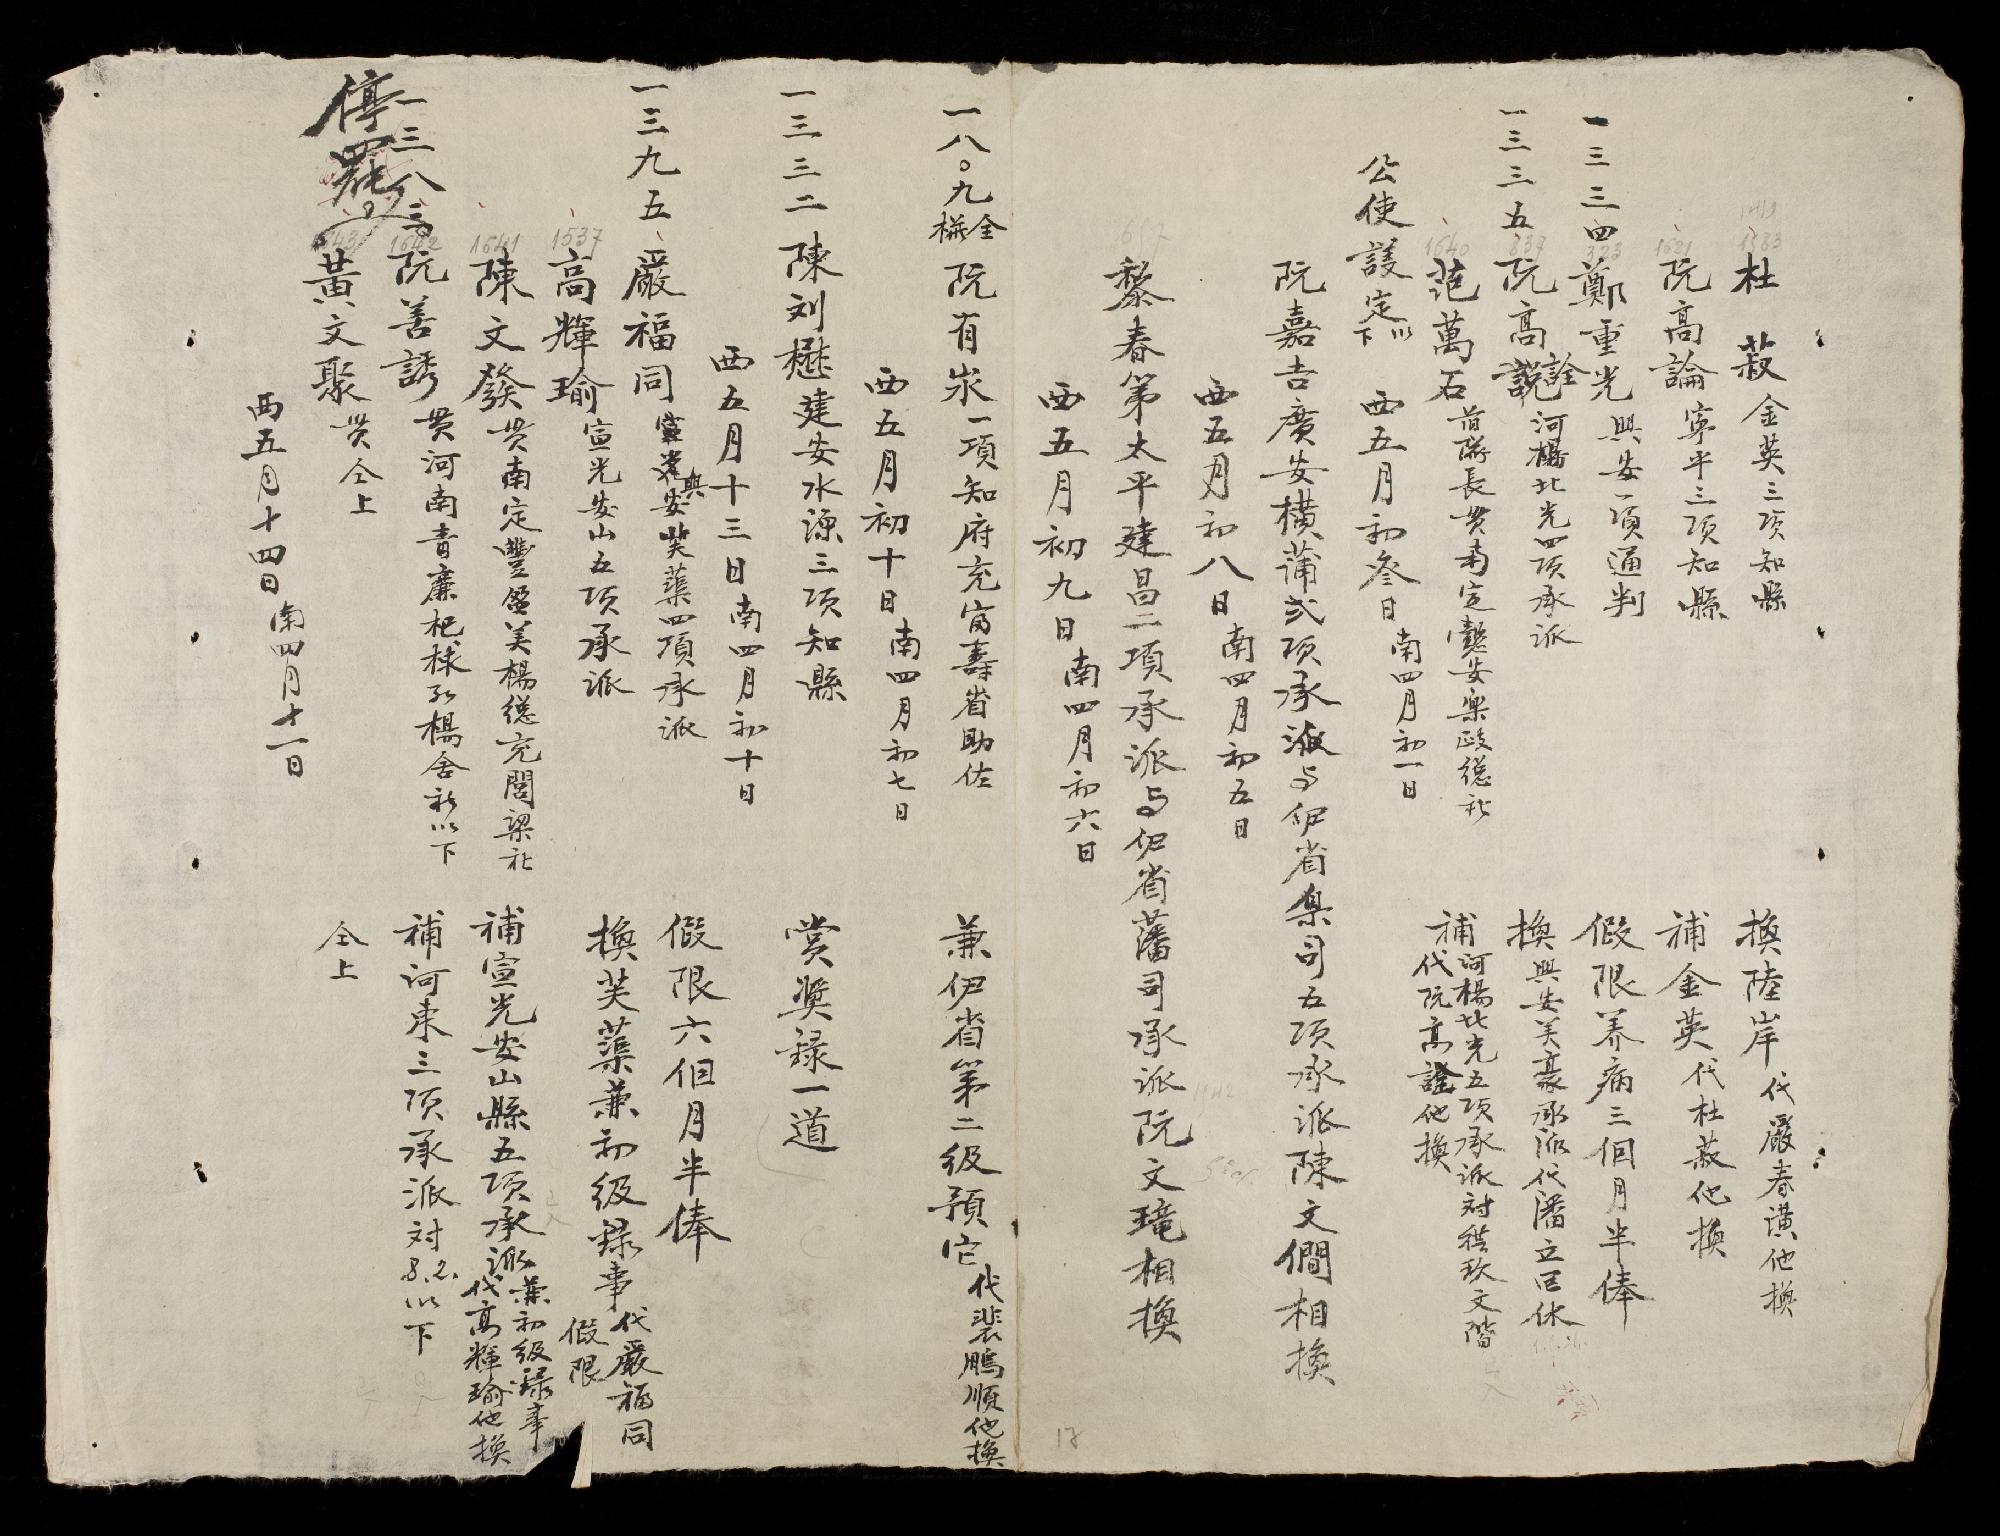 杜菽金英三項知縣 換陸岸代嚴春潢他換
阮高論寧平三項知縣 補金英代杜菽他換
一三三四 鄭重光興安一項通判 假限养病三個月半俸
一三三五 阮高詮河楊北光四項承派 換興安美豪承派代潘立回休
范萬石首隊長贯南定懿安樂政總社 補河楊北光五項承派対 代阮高詮他換
公使護定以下 西五月初叁日 南四月初一日
阮嘉吉廣安横蒲弍項承派与伊省臬司五項承派陳文僩相換
西五月初八日 南四月初五日
黎春第太平建昌二項承派与伊省藩司承派阮文琦相換
西五月初九日 南四月初六日
一八〇九 仝 阮有永一項知府充富壽省助佐 兼伊省第二級預它代裴鵬順他換
西五月初十日 南四月初七日
一三三二 陳刘懋建安水源三項知縣 赏奬録一道
西五月十三日 南四月初十日
一三九五 嚴福同興安芙蕖四項承派 假限六個月半俸
高輝瑜宣光安山五項承派 換芙蕖兼初級録事代嚴福同假限
陳文發贯南定豐盈美楊總充閭梁社 補宣光安山縣五項承派兼初級録事代高輝瑜他換
一三八三 阮善誘贯河南青廉杞棣楊舍社以下 補河東三項承派対8.2.以下
停罷 黃文聚贯仝上 仝上
西五月十四日 南四月十一日
1583
1621
1640
1537
1641
1642
17